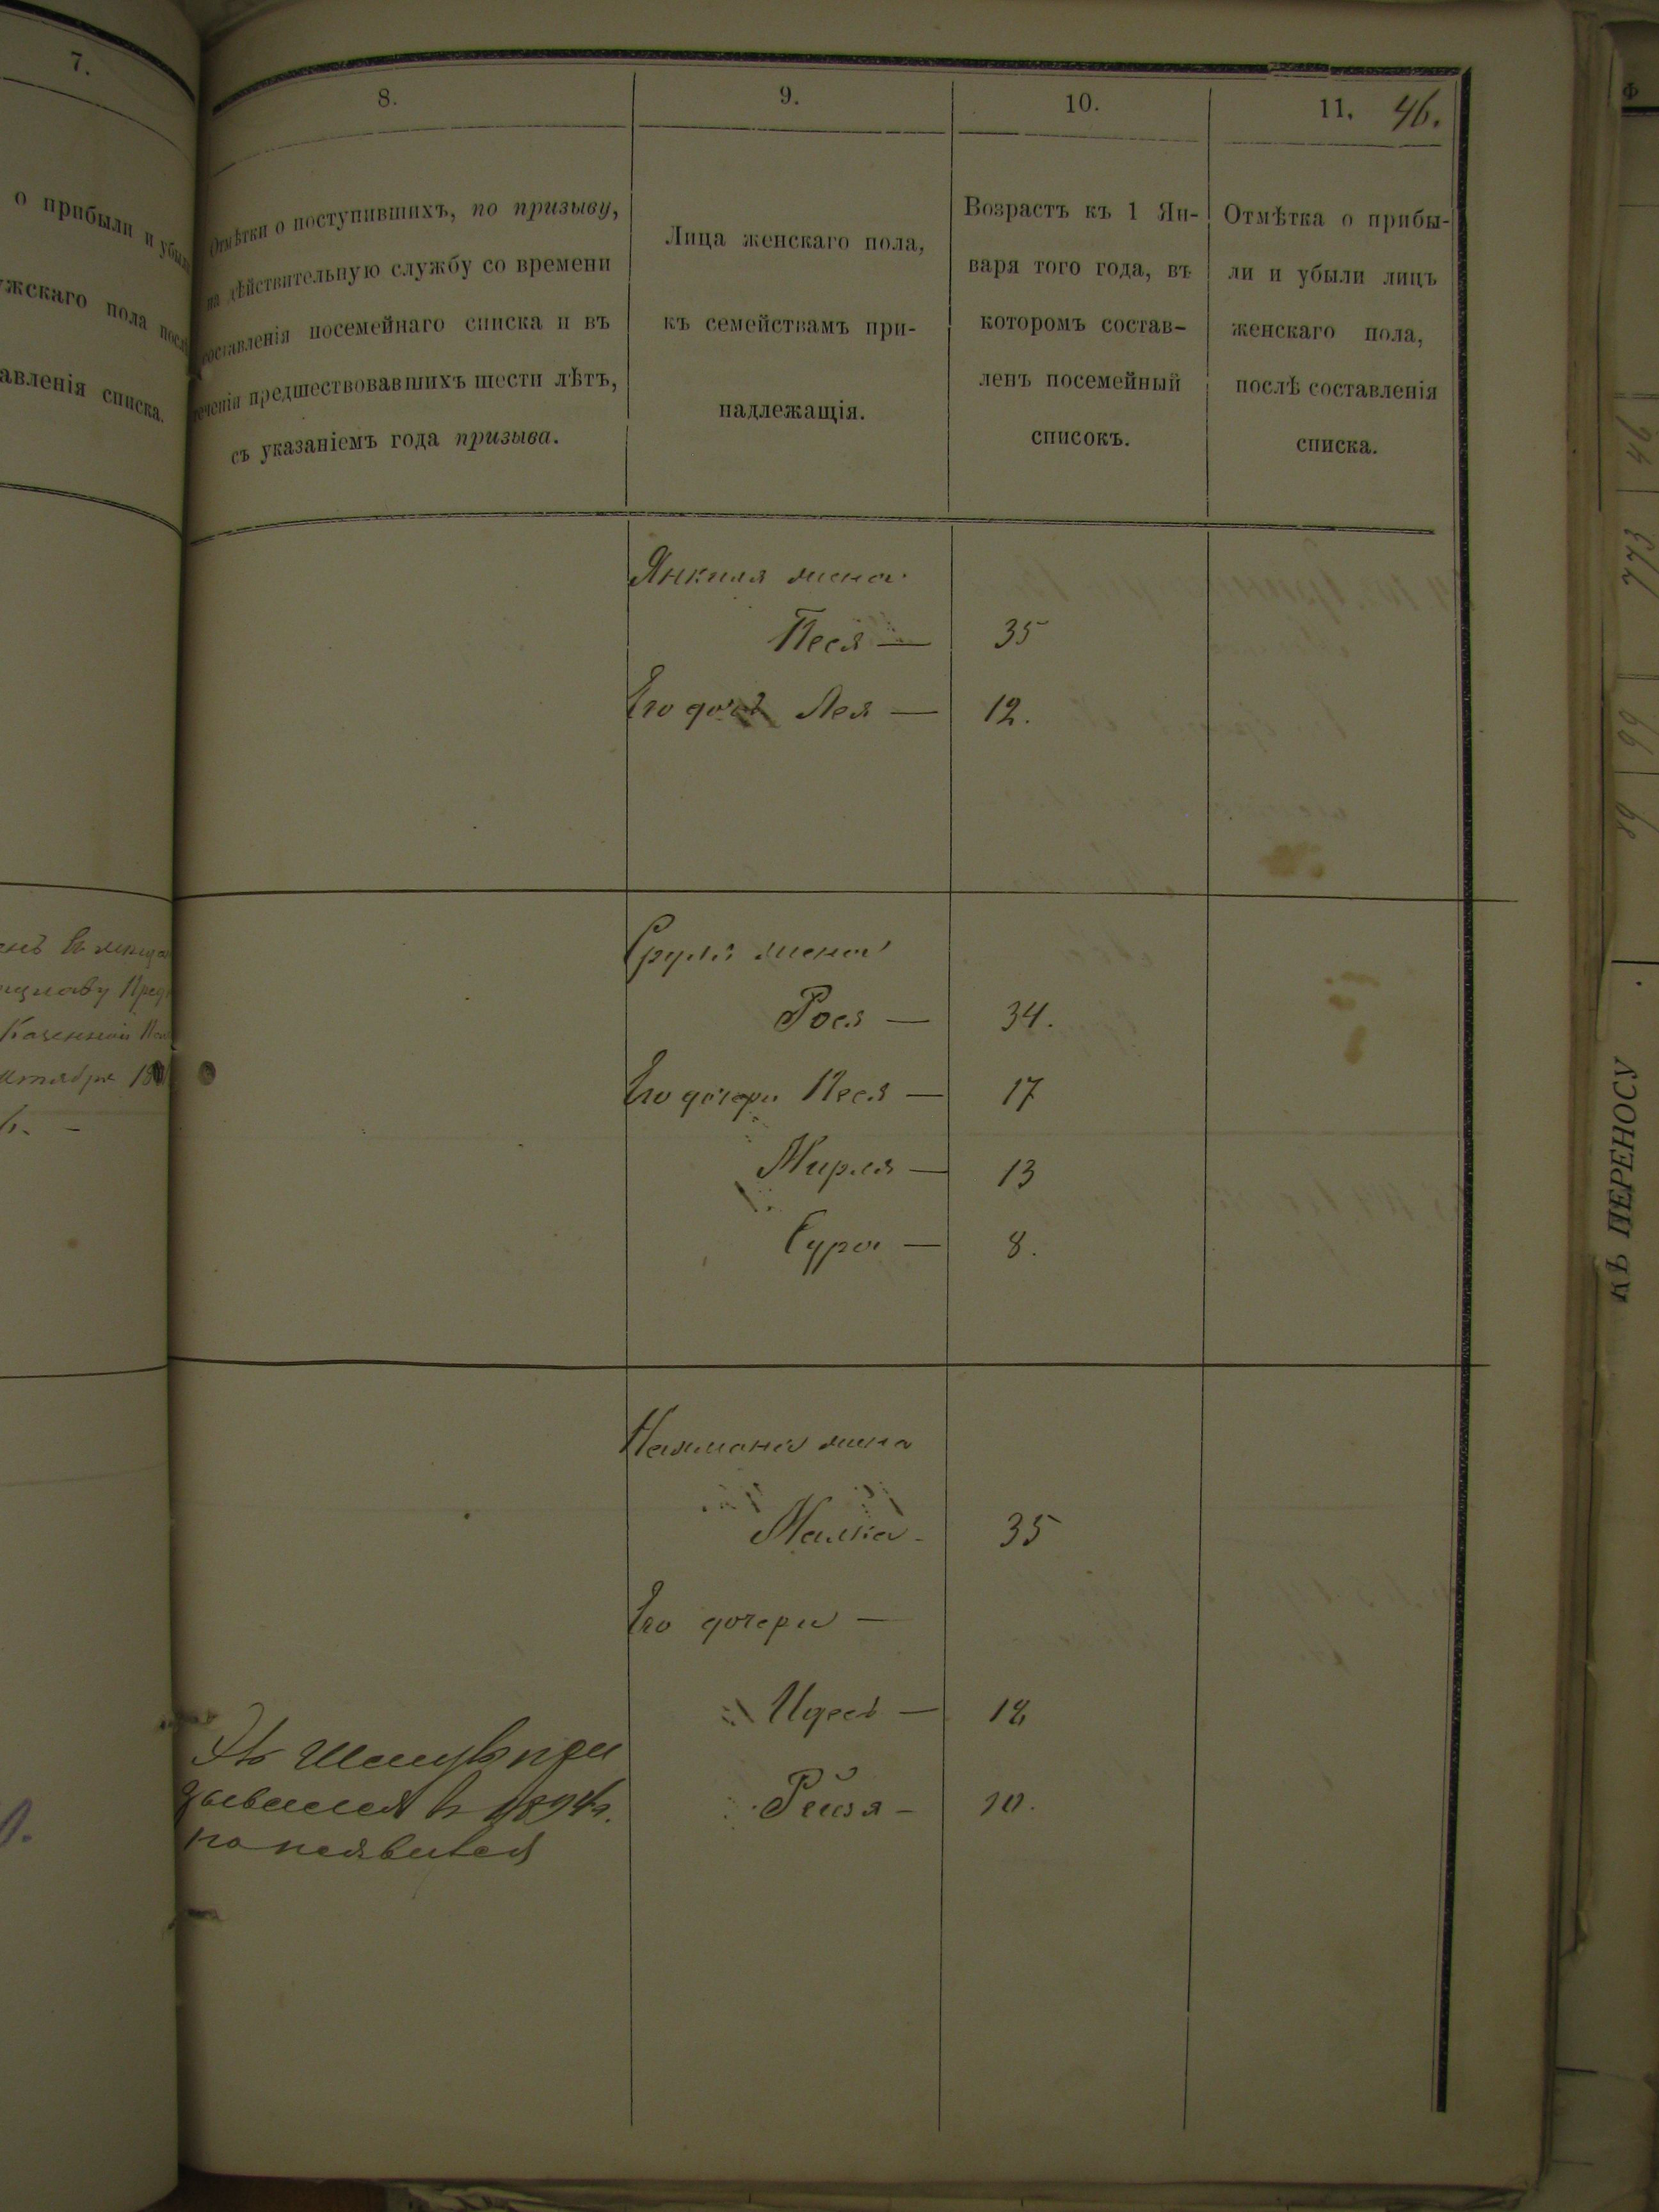 7.
о прибыли и убыли
жскаго пола послѣ
авленія списка.
Казенной
8.
9.
10.
11.
46.
Отмѣтки о поступившихъ, по призыву,
на дѣйствительную службу со времени
составленія посемейнаго списка и въ
теченіи предшествовавшихъ шести лѣтъ,
съ указаніемъ года призыва.
Лица женскаго пола,
къ семействамъ при-
надлежащія.
Возрастъ къ 1 Ян-
варя того года, въ
которомъ состав-
ленъ посемейный
списокъ.
Отмѣтка о прибы-
ли и убыли лицъ
женскаго пола,
послѣ составленія
списка.
Янкиля жена
Песя — 35
Его дочь Лея — 12.
Сруля жена
Рося — 34.
Его дочери Песя — 17
Мирля — 13
Сура — 8.
Нахмана жена
Малка - 35
Его дочери —
Идесь — 12
Рейзя - 10.
при
зывался в 1894 г.
46
773
99
89
КЪ ПЕРЕНОСУ